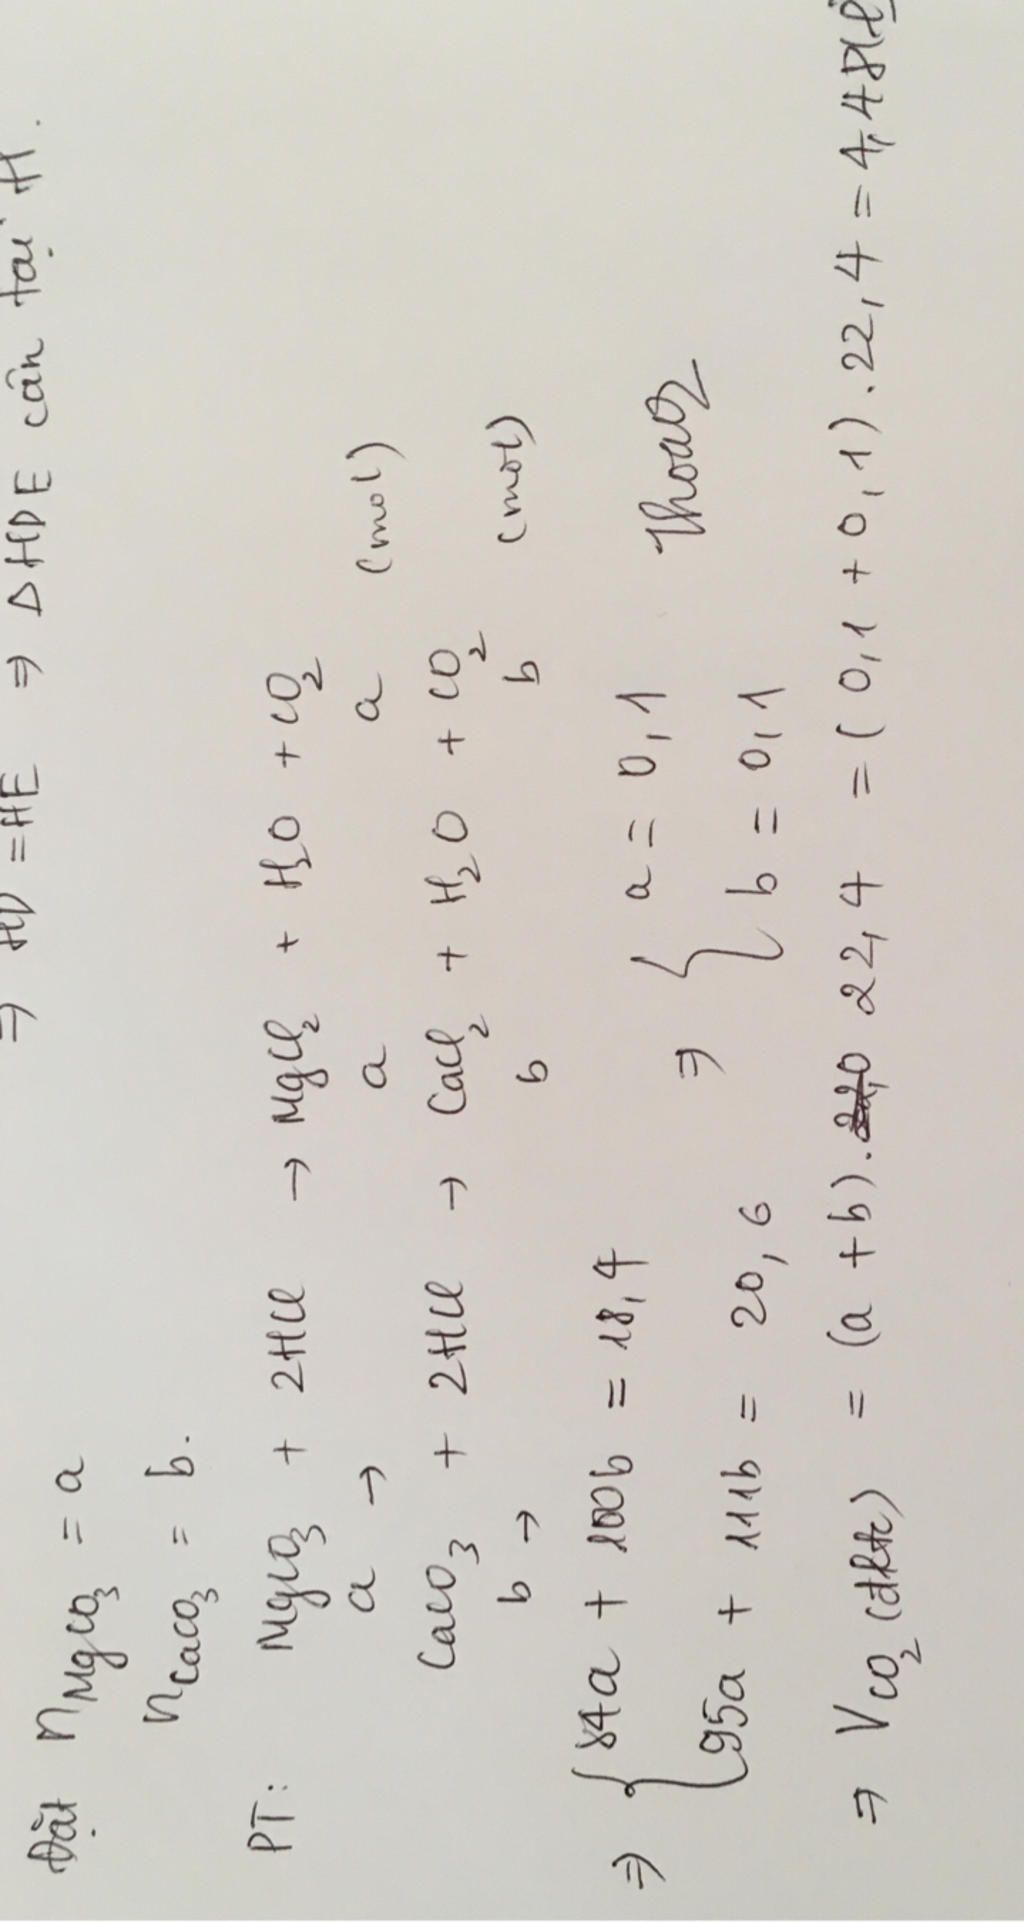 ⇒ HD = HE ⇒ ΔHDE cân tại H.
Đặt nMgCO₃ = a
nCaCO₃ = b.
PT: MgCO₃ + 2HCl → MgCl₂ + H₂O + CO₂
a → a a (mol)
CaCO₃ + 2HCl → CaCl₂ + H₂O + CO₂
b → b b (mol)
⇒ { 84a + 100b = 18,4 ⇒ { a = 0,1
95a + 111b = 20,6 b = 0,1
⇒ VCO₂ (đktc) = (a + b). 22,4 = (0,1 + 0,1). 22,4 = 4,48(l)